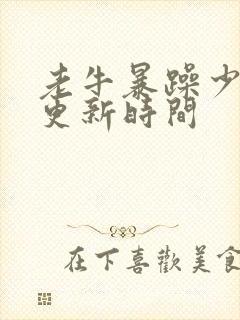 老牛暴躁少
更新時間
在下喜歡美食